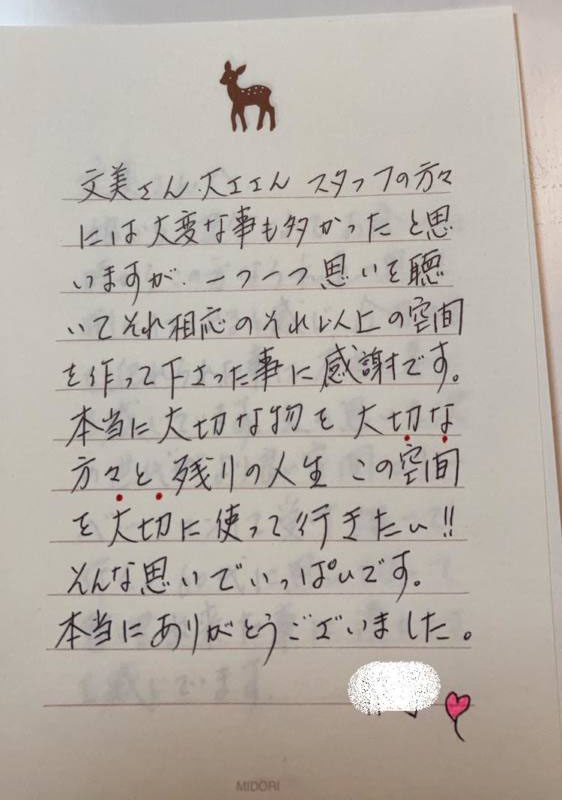 文美さん、大工さん スタッフの方々
には大変な事も多かったと思
いますが、一つ一つ思いを聴
いてそれ相応のそれ以上の空間
を作って下さった事に感謝です。
本当に大切な物を大切な
方々と残りの人生 この空間
を大切に使って行きたい!!
そんな思いでいっぱいです。
本当にありがとうございました。
MIDORI